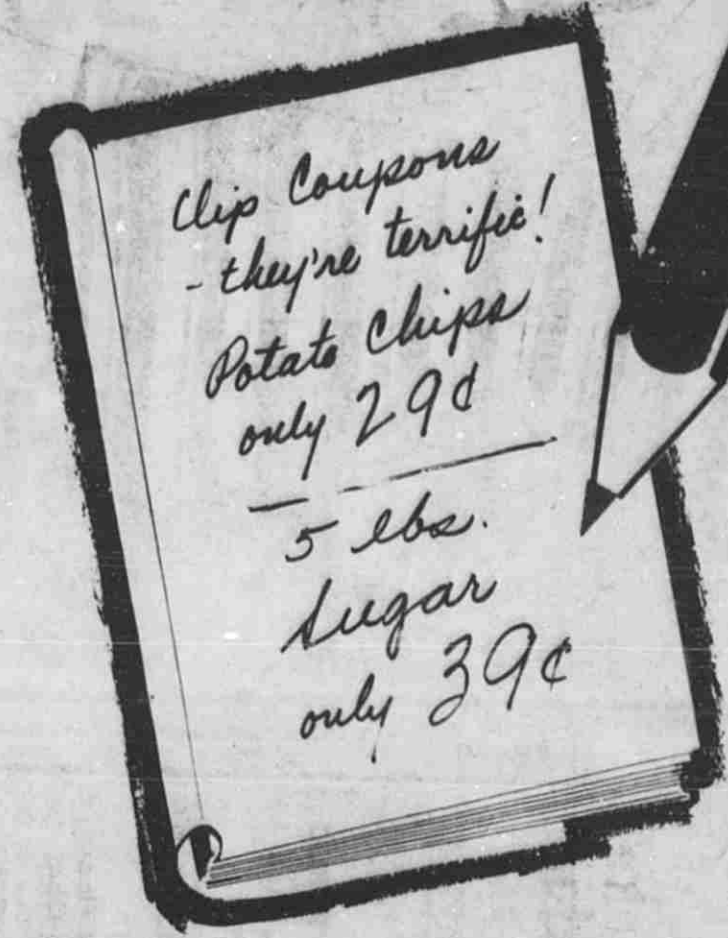 Clip Coupons
- they're terrific!
Potato Chips
only 29¢
5 lbs.
Sugar
only 39¢